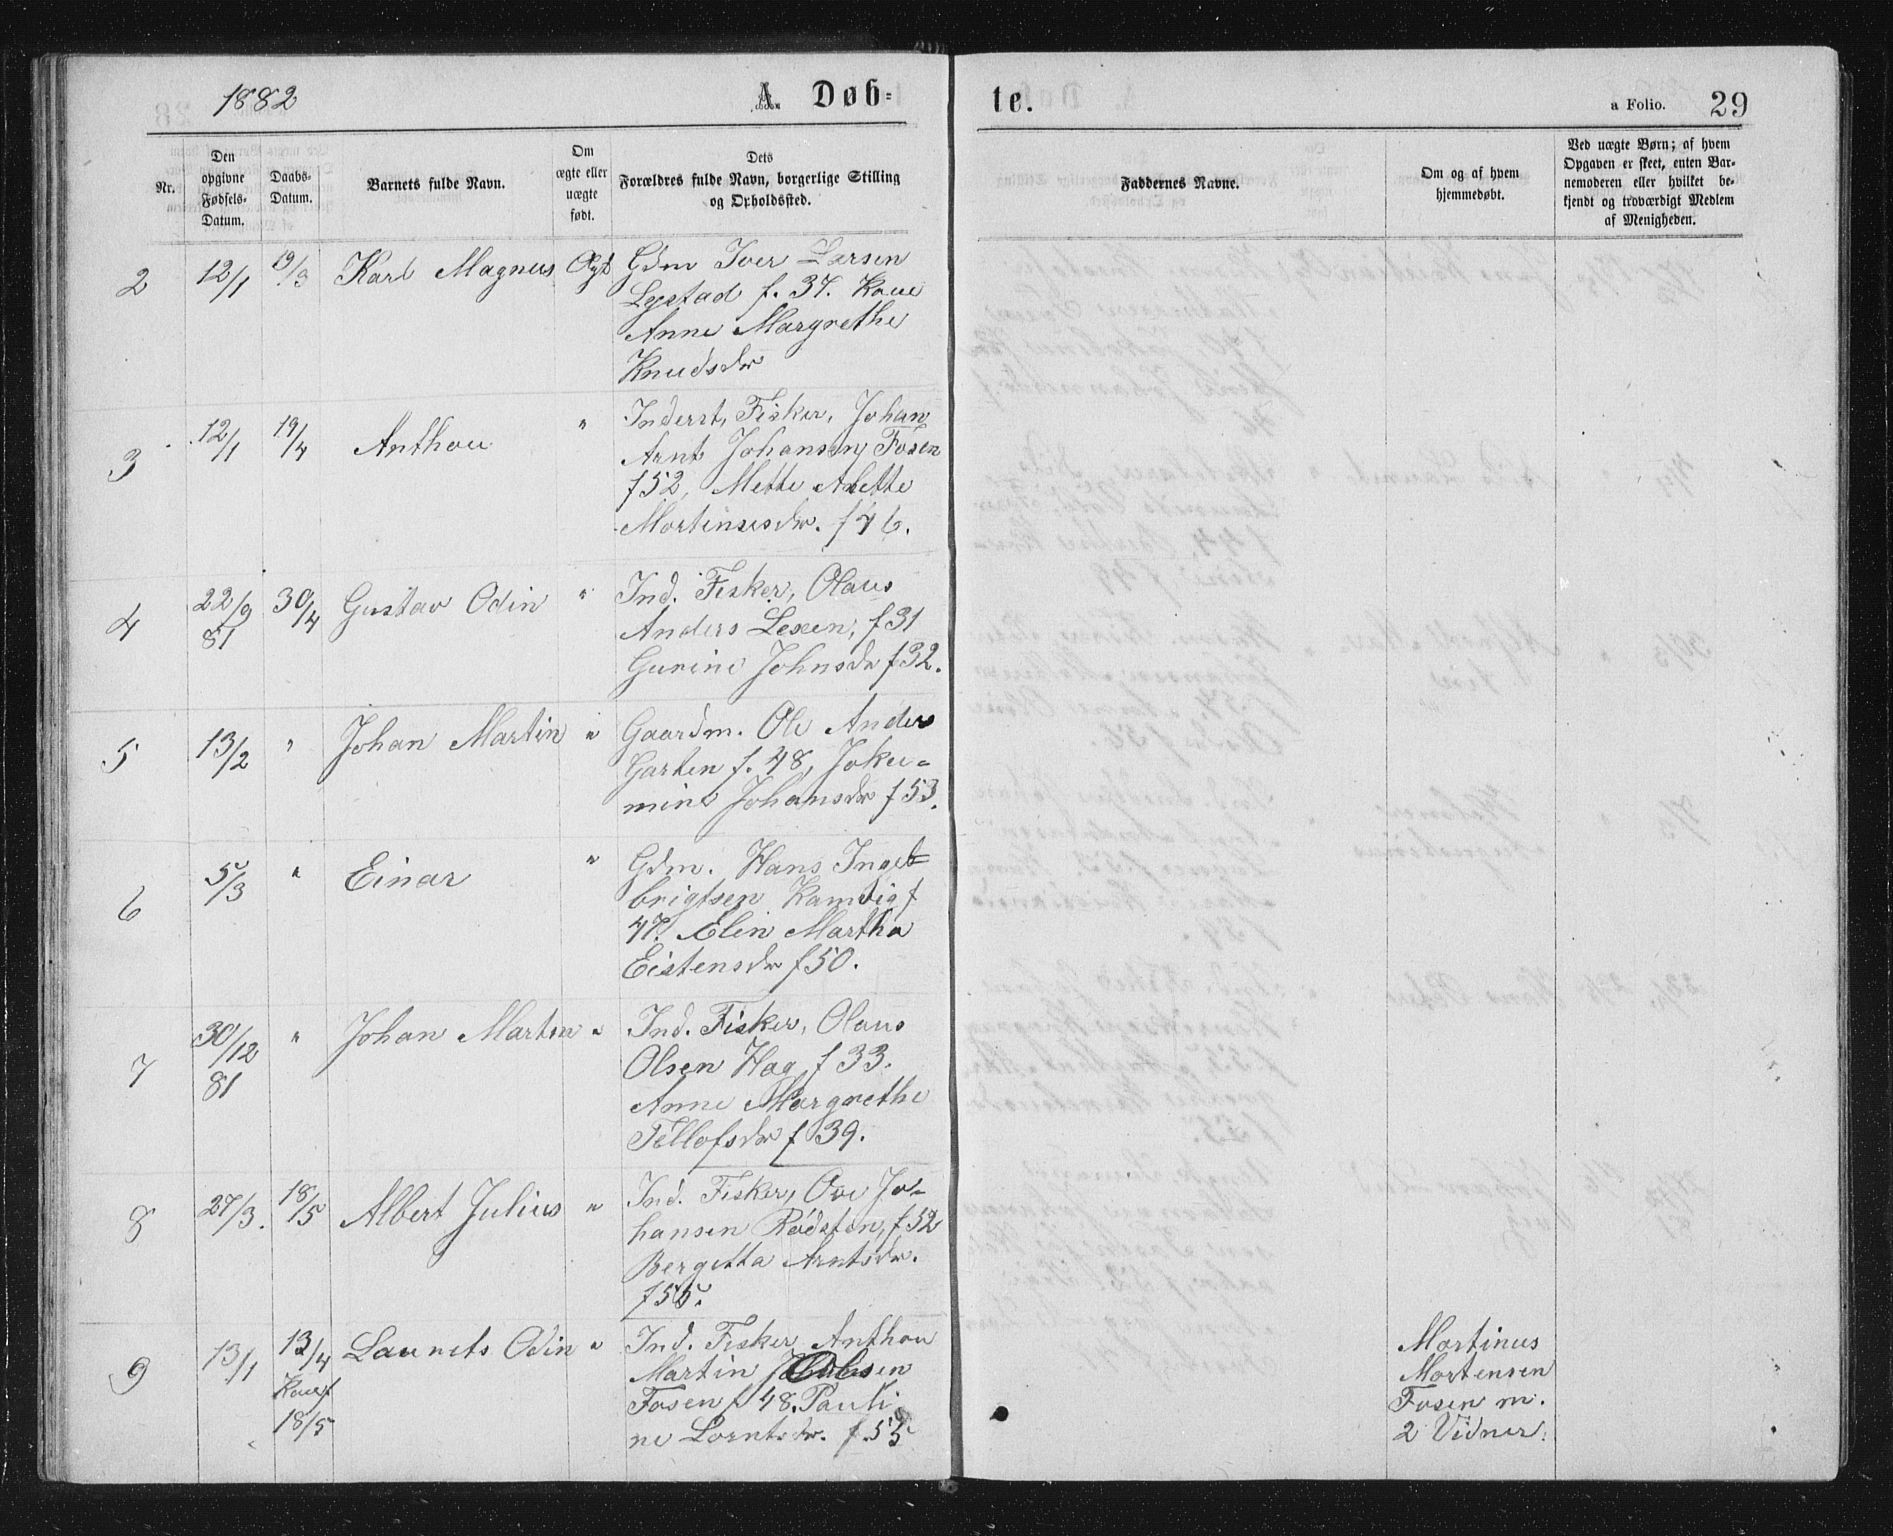 1882
A. Døb-
te.
a Folio.
29
Nr.
Den
opgivne
Fødsels-
Datum.
Daabs-
Datum.
Barnets fulde Navn.
Om
ægte eller
uægte
født.
Dets
Forældres fulde Navn, borgerlige Stilling
og Opholdssted.
Faddernes Navne.
Om og af hvem
hjemmedøbt.
Ved uægte Børn; af hvem
Opgaven er skeet, enten Bar-
nemoderen eller hvilket be-
kjendt og troværdigt Medlem
af Menigheden.
2 12/1 19/3 Karl Magnus Ægt Gdm Iver Larsen
Lystad f. 37. Kone
Anne Margrethe
Knudsdr
3 12/1 19/4 Anthon " Inderst, Fisker, Johan
Arnt Johansen Fosen
f52, Mette Alette
Mortinusdr. f46.
4 22/9 81 30/4 Gustav Odin " Ind. Fisker, Olaus
Anders Lexen, f31
Gurine Johnsdr f32.
5 13/2 " Johan Martin " Gaardm. Ole Anders
Garten f. 48, Joku-
mine Johansdr f53.
6 5/3 " Einar " Gdm. Hans Ingeb-
brigtsen Kamvig f
47. Elin Martha
Eistensdr f50.
7 30/12 81 " Johan Martin " Ind. Fisker, Olaus
Olsen Hag f 33.
Anne Margrethe
Tellofsdr f 39.
8 27/3. 18/5 Albert Julius " Ind. Fisker, Ove Jo-
hansen Rødsten, f52
Bergitta Arntsdr.
f55.
9 13/1 13/4 Launits Odin " Ind. Fisker Anthon
Martin Olsen
Fosen f 48. Pauli
ne Lorntsdr. f. 55
Konf
18/5
Martinus
Mortensen
Fosen m.
2 Vidner.